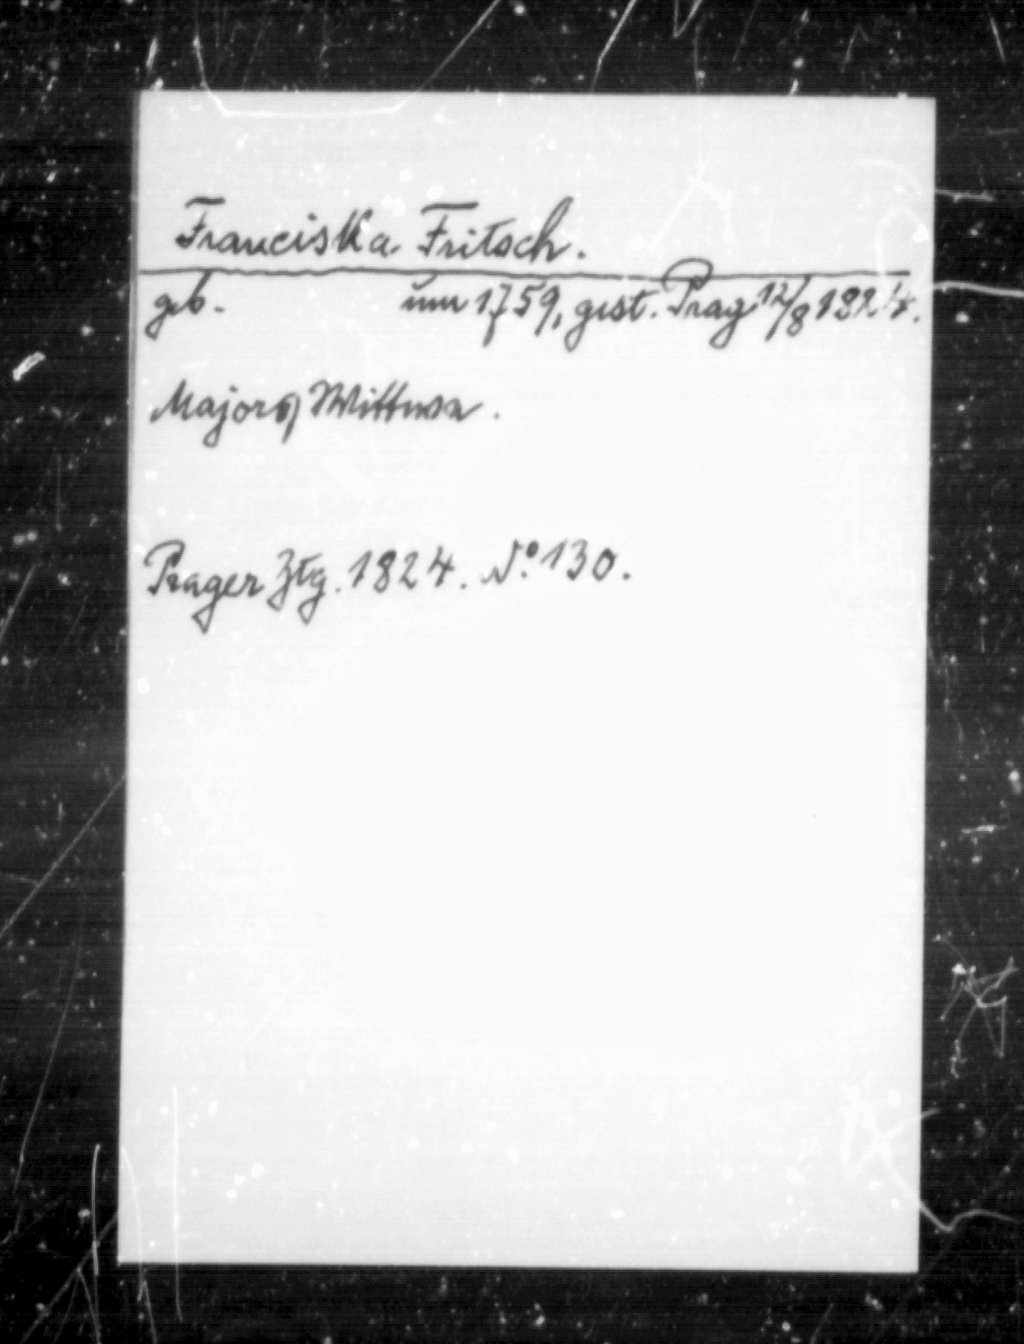 Franciska Fritsch.
geb. um 1759, gest. Prag 12/8 1824.
Majors Wittwe.
Prager Ztg. 1824. No. 130.